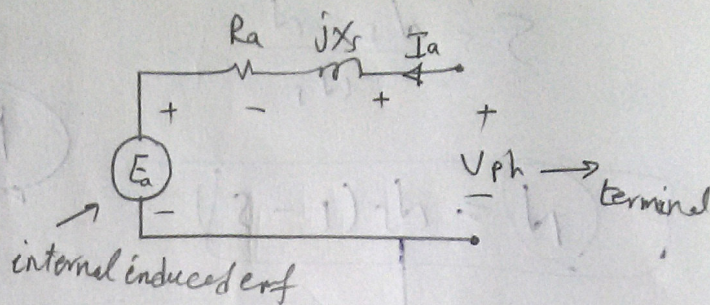 Ra jXs Ia
+ - + +
Ea
Vph → terminal
- -
internal induced emf